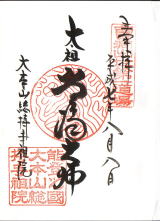 奉拝
平成七年八月八日
太祖
常済大師
大本山總持寺祖院
能登國
大本山總
持寺祖院